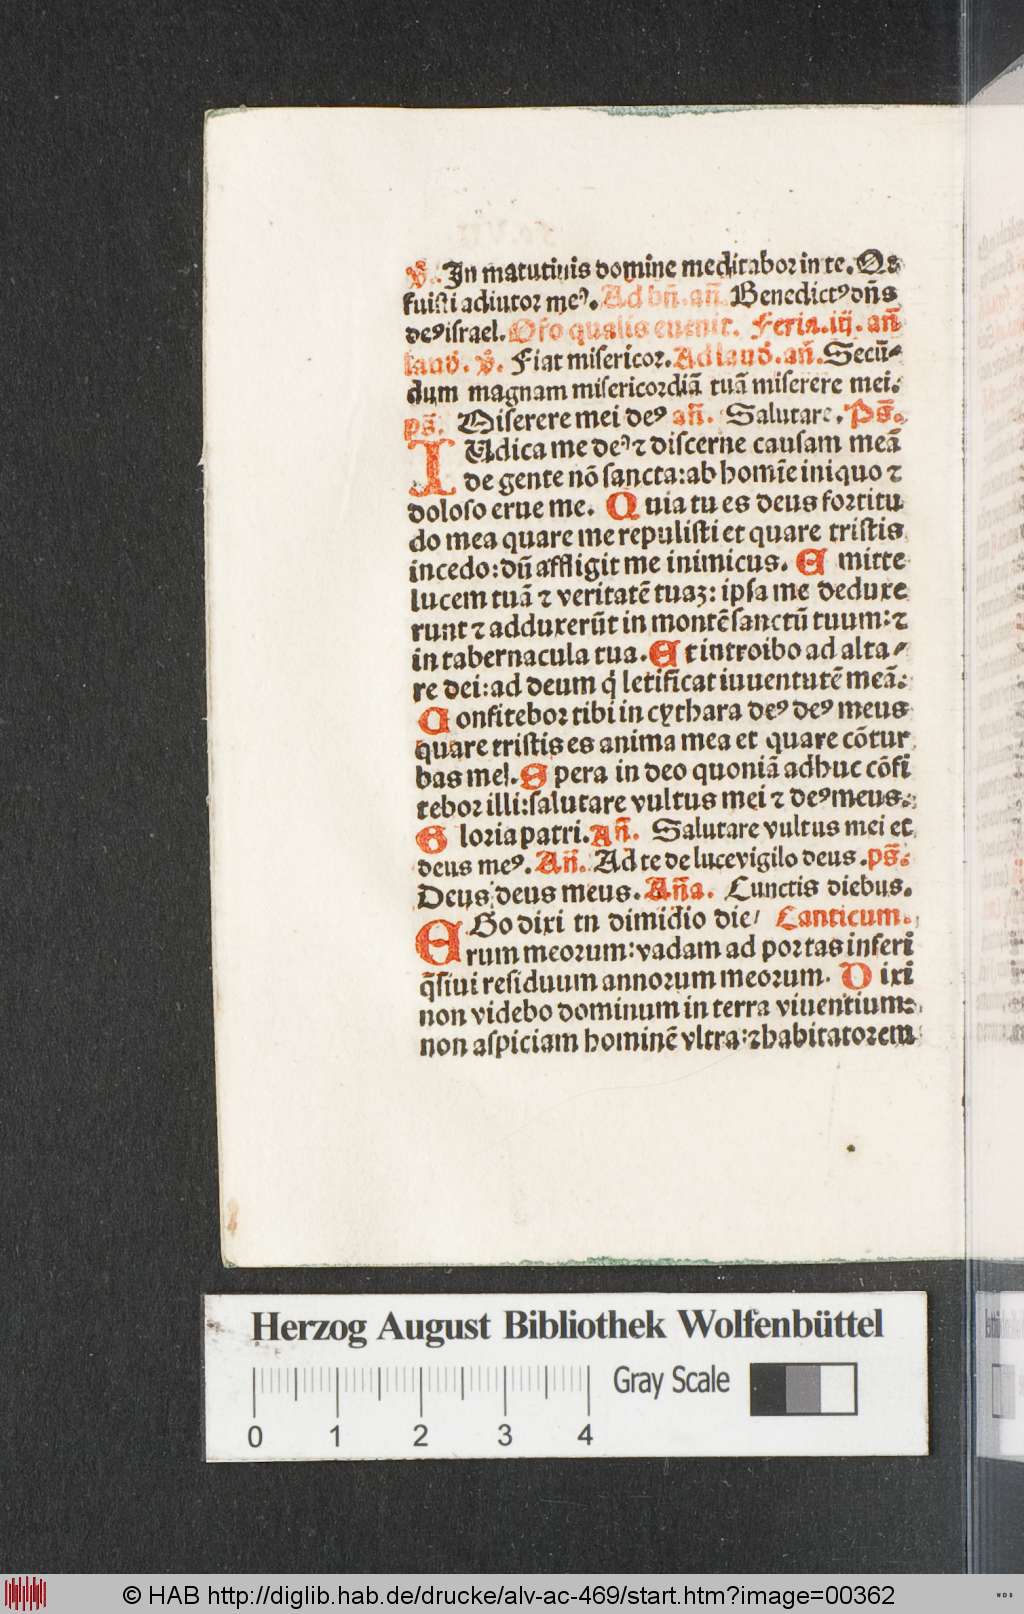 ꝟ. In matutinis domine meditabor in te. Qr
fuisti adiutor meꝰ. Ad bn̄. an̄. Benedictꝰ dn̄s
deꝰ israel. Oro qualis euenit. Feria. iij. an̄
laud. ꝟ. Fiat misericor. Ad laud. an̄. Secū-
dum magnam misericordiā tuā miserere mei.
ps̄. Miserere mei deꝰ an̄. Salutare. Ps̄.
IUdica me deꝰ ⁊ discerne causam meā
de gente nō sancta: ab homīe iniquo ⁊
doloso erue me. Quia tu es deus fortitu
do mea quare me repulisti et quare tristis
incedo: dū affligit me inimicus. Emitte
lucem tuā ⁊ veritatē tuaꝫ: ipsa me deduxe
runt ⁊ adduxerūt in montē sanctū tuum: ⁊
in tabernacula tua. Et introibo ad alta-
re dei: ad deum q̇ letificat iuuentutē meā.
Confitebor tibi in cythara deꝰ deꝰ meus
quare tristis es anima mea et quare cōtur
bas me. Spera in deo quoniā adhuc cōfi
tebor illi: salutare vultus mei ⁊ deꝰ meus.
Gloria patri. An̄. Salutare vultus mei et
deus meꝰ. An̄. Ad te de luce vigilo deus. ps̄.
Deus deus meus. An̄a. Cunctis diebus.
EGo dixi in dimidio die/ Canticum.
rum meorum: vadam ad portas inferi
q̄siui residuum annorum meorum. Dixi
non videbo dominum in terra viuentium:
non aspiciam hominē vltra: ⁊ habitatorem
Herzog August Bibliothek Wolfenbüttel
Gray Scale
0 1 2 3 4
© HAB http://diglib.hab.de/drucke/alv-ac-469/start.htm?image=00362